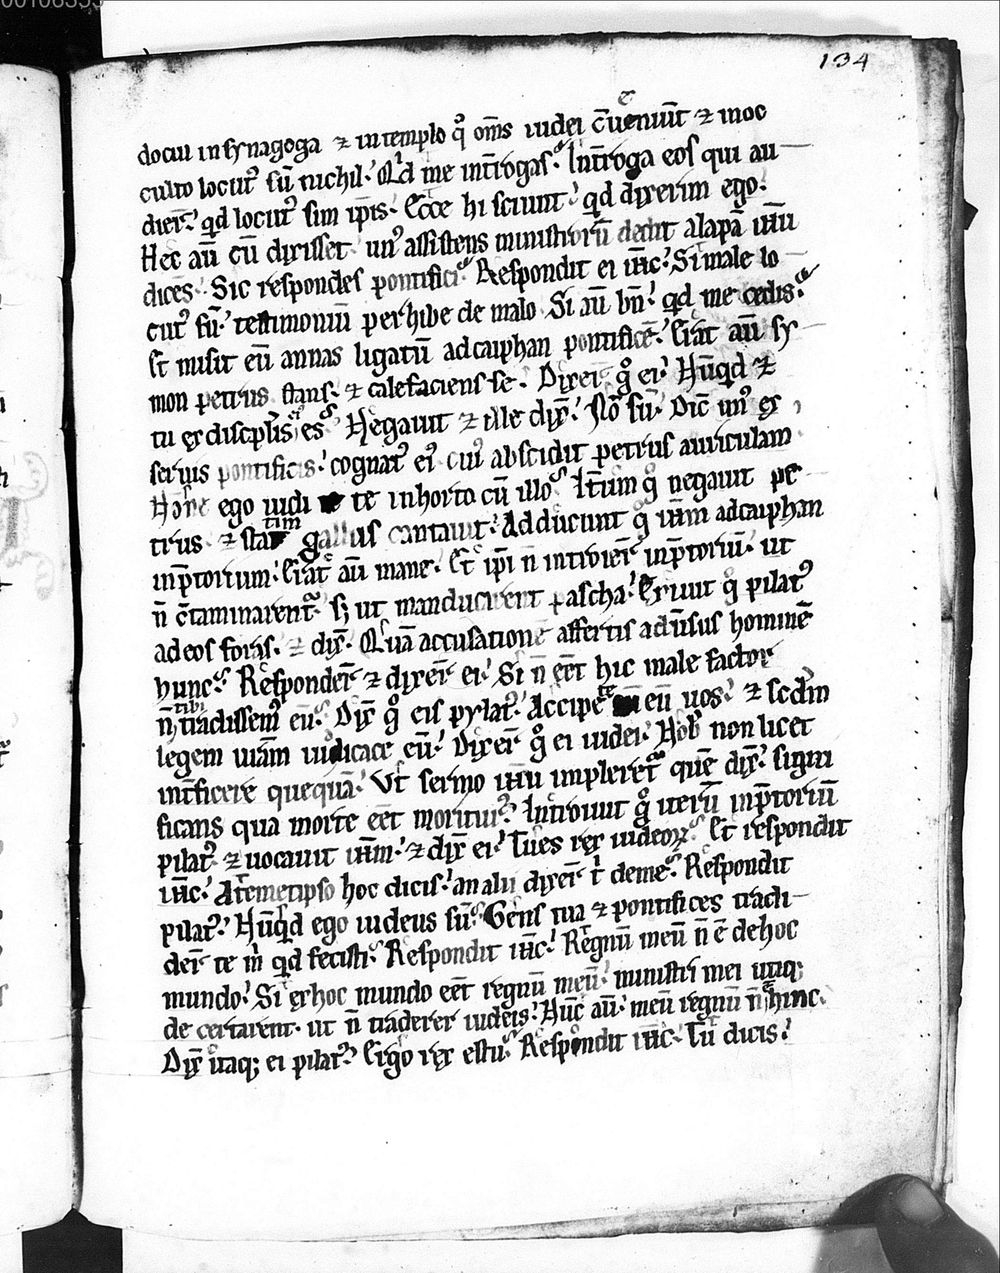 00106355
134
docui in synagoga ⁊ in templo q͛ om̅s iudei c̅ueniu̅t ⁊ in oc
culto locut᷒ su̅ nichil. Qͥd me int̅rogas. Int̅roga eos qui au
dier̅t qd locut᷒ sim ip̅is. Ecce hi sciunt qd dixerim ego.
Hec au̅ cu̅ dixisset un᷒ assistens ministroru̅ dedit alapa̅ ih̅u
dice̅s. Sic respondes pontifici. Respondit ei ih̅c. Si male lo
cut᷒ su̅ testimoniu̅ perhibe de malo. Si au̅ bn̅ qd me cedis.
Et misit eu̅ annas ligatu̅ ad caiphan pontifice̅. Erat au̅ sy
mon petrus stans ⁊ calefaciens se. Dixer̅ g̊ ei. Nu̅qd ⁊
tu ex discip̅lis ei᷒ es. Negauit ⁊ ille dix̅. No̅ su̅. Dic̅ un᷒ ex
seruis pontificis cognat᷒ ei᷒ cui᷒ abscidit petrus auriculam
Nonne ego uidi te in horto cu̅ illo. Iteru̅m g̊ negauit pe
trus ⁊ statim gallus cantauit. Adducunt g̊ ih̅m ad caiphan
in p̅torium. Erat au̅ mane. Et ip̅i n̅ introier̅ in p̅toriu̅ ut
n̅ c̅taminarent᷑ s; ut manducarent pascha. Exiuit g̊ pilat᷒
ad eos foras ⁊ dix̅. Qua̅ accusatione̅ affertis aduersus homine̅
hunc. Responder̅ ⁊ dixer̅ ei. Si n̅ eet̅ hic male factor
n̅ tibi tradissem᷒ eu̅. Dix̅ g̊ eis pylat᷒. Accipite eu̅ uos ⁊ scd̅m
legem ur̅am iudicate eu̅. Dixer̅ g̊ ei iudei. Nob̅ non licet
int̅ficere quequa̅. Vt sermo ih̅u impleret᷑ que̅ dix̅ signi
ficans qua morte eet̅ moritur᷒. Introiuit g̊ iteru̅ in p̅toriu̅
pilat᷒ ⁊ uocauit ih̅m ⁊ dix̅ ei. Tu es rex iudeoꝝ. Et respondit
ih̅c. A temetipso hoc dicis an alii dixer̅ t̅ de me. Respondit
pilat᷒. Nu̅qd ego iudeus su̅. Gens tua ⁊ pontifices tradi
der̅ te m̅ qd fecisti. Respondit ih̅c. Regnu̅ meu̅ n̅ e̅ de hoc
mundo. Si ex hoc mundo eet̅ regnu̅ meu̅ ministri mei utiq;
decertarent ut n̅ traderer iudeis. Nu̅c au̅ meu̅ regnu̅ n̅ e̅ hinc.
Dix̅ itaq; ei pilat᷒. Ergo rex es tu. Respondit ih̅c. Tu dicis.